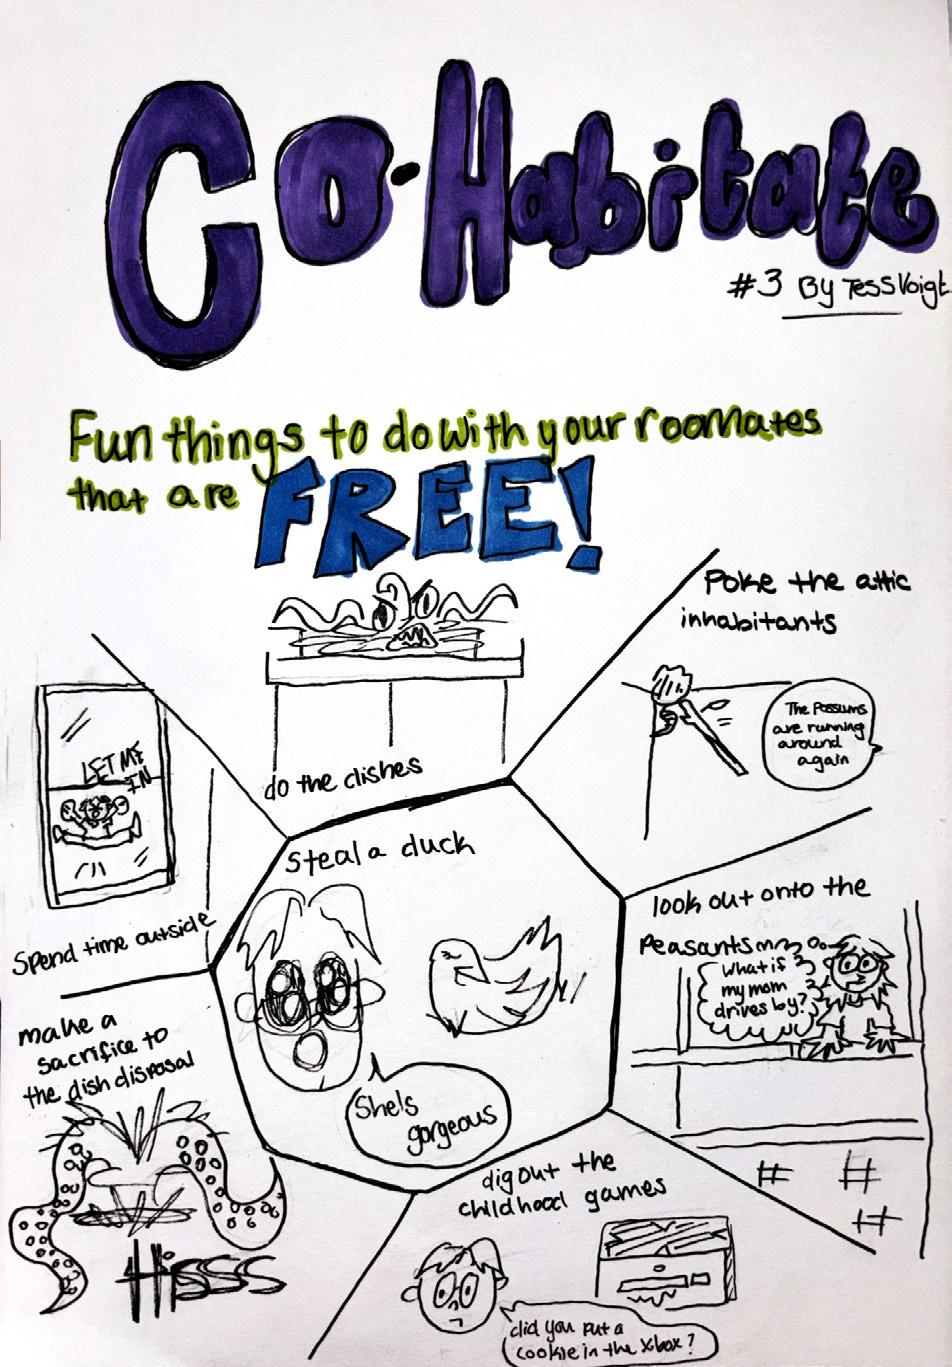 Co-Habitate
#3 By Tess Voigt
Fun things to do with your roomates
that are FREE!
do the dishes
Poke the attic
inhabitants
The Possums
are running
around
again
LET ME
IN
Spend time outside
Steal a duck
She's
gorgeous
look out onto the
Peasants
What if
my mom
drives by?
make a
sacrifice to
the dish disposal
Hisss
dig out the
childhood games
did you put a
cookie in the xbox?